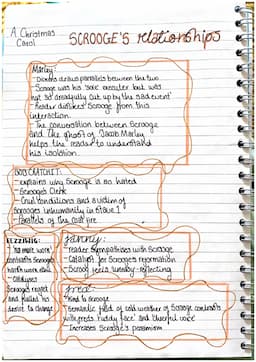 A Christmas
Carol
SCROOGE'S relationships
Marley:
- Dickens draws parallels between the two
- Scrooge was his sole executer but was
not so dreadfully cut up by the sad event
- Reader dislikes Scrooge from this
interaction
- The conversation between Scrooge
and the ghost of Jacob Marley
helps the reader to understand
his isolation.
BOB CRATCHIT:
- explains why Scrooge is so hated
- Scrooge's Clerk
- Cruel conditions and victim of
Scrooges inhumanity in stave 1
- Parallels of the coal fire
FEZZIWIG:
- 'no more work'
contrasts Scrooge's
harsh work
- Catalyses
Scrooge's regret
and fuelled his
desire to change
Fanny:
- reader sympathises with Scrooge
- Catalyst for Scrooge's reformation
- Scrooge feels lonely - reflecting
Fred:
- Kind to Scrooge
- Semantic field of cold weather of Scrooge contrasts
with freds 'ruddy face' and 'cheerful voice'
- Increases Scrooge's pessimism